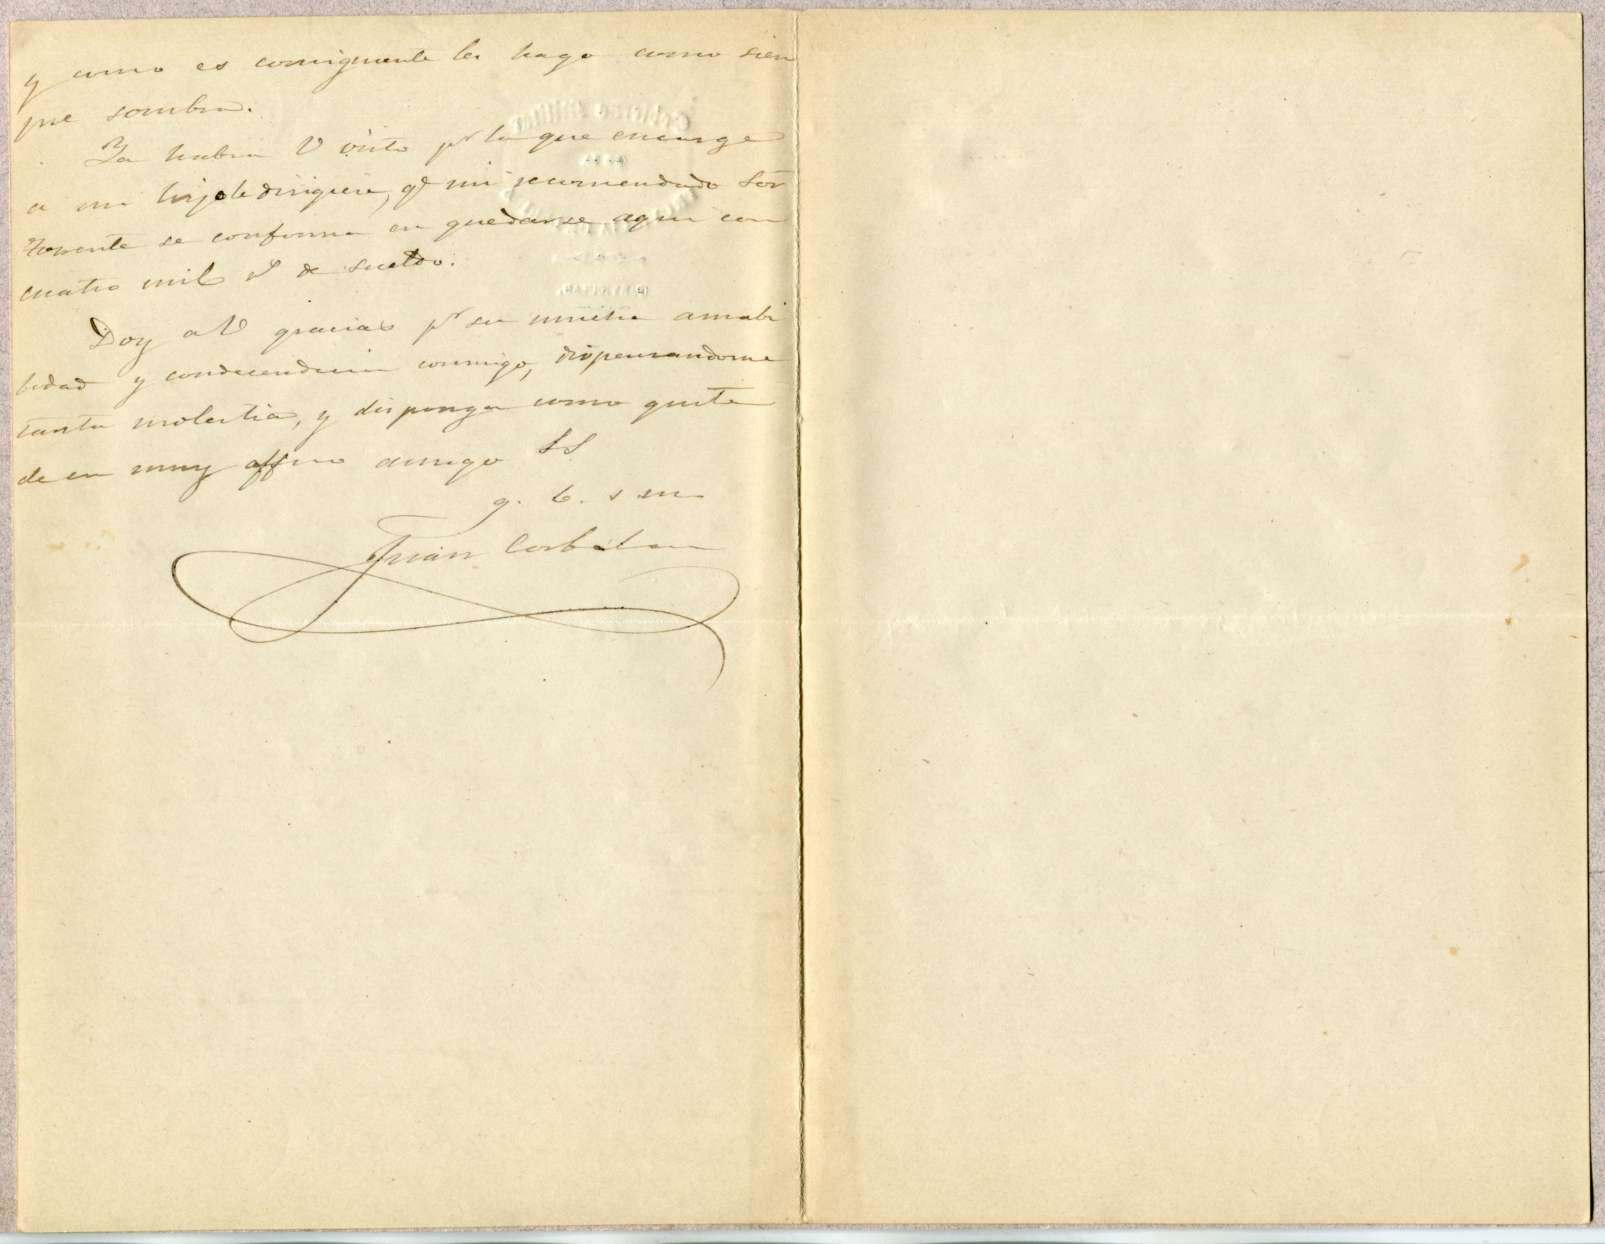 y como es consiguiente les hago como siem
pre sombra.
Ya habra V visto pr la que encargé
a mi hijo le dirigiera, qe mi recomendado Sor
Torrente se conforma en quedarse aquí con
cuatro mil rs de sueldo.
Doy a V gracias pr su mucha amabi
lidad y condecendencia conmigo, dispensandome
tanta molestia, y disponga como guste
de su muy affmo amigo SS
q. b. s m
Juan Corbalan